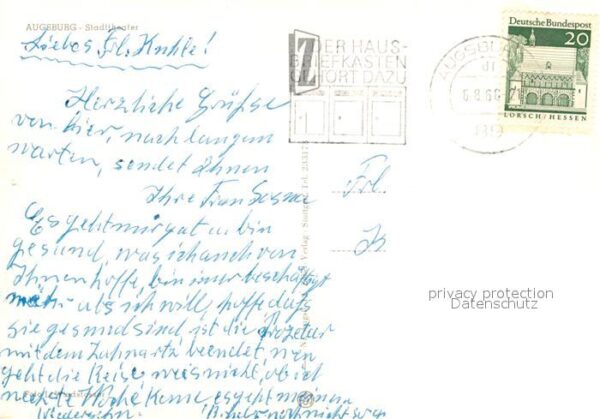 AUGSBURG - Stadttheater
Liebes Frl. Kuhle!
Herzliche Grüße
von hier, nach langem
warten, sendet Ihnen
Ihre Frau
Es geht mir gut u. bin
gesund, was ich auch von
Ihnen hoffe, bin immer beschäftigt
mehr als ich will, hoffe daß
sie gesund sind, ist die
mit dem Zahnartz beendet,
geht die Reise, weis nicht, ob ich
nächste Woche komme, es geht
Wiedersehn
DER HAUS-
BRIEFKASTEN
GEHÖRT DAZU
AUGSBURG
Deutsche Bundespost
20
LORSCH/HESSEN
Frl
Verlag · Stuttgart Tel. 233178
privacy protection
Datenschutz